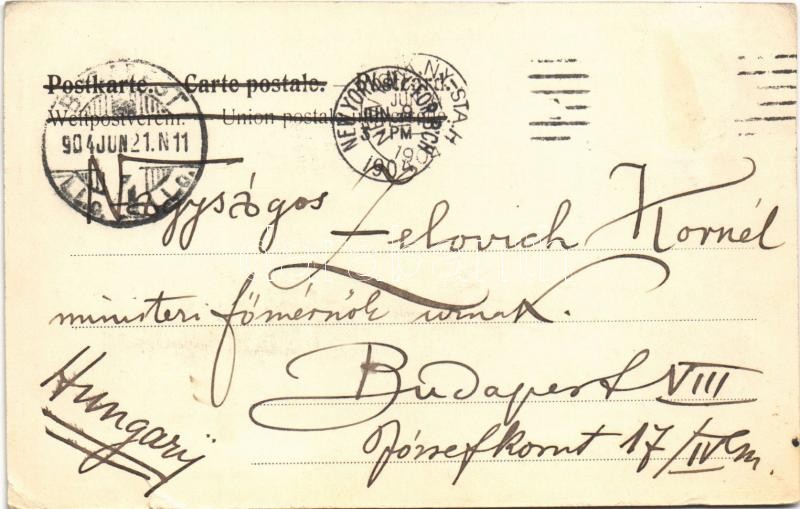 Postkarte. Carte postale. Postcard.
Weltpostverein. Union postale universelle.
BUDAPEST
904 JUN 21. N 11
NEW YORK, N.Y. FOR. BCH
JUN 9
PM
1904
N.Y.-STA. H
Nagyságos Zelovich Kornél
ministeri főmérnök urnak.
Budapest VIII
Józsefkorut 17/IV em.
Hungary